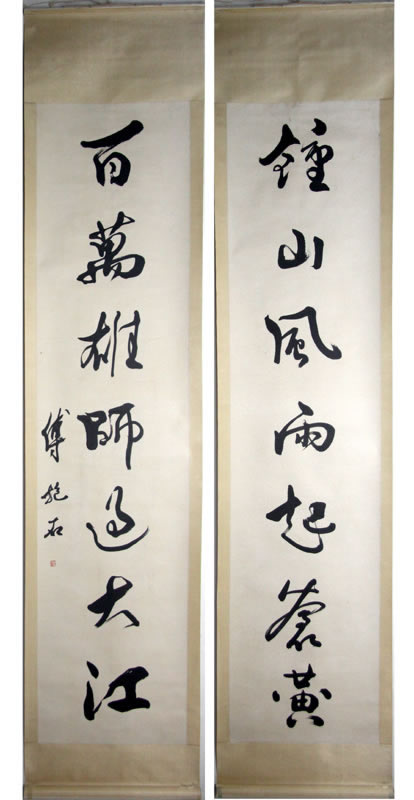 鐘山風雨起蒼黃
百萬雄師過大江
傅抱石